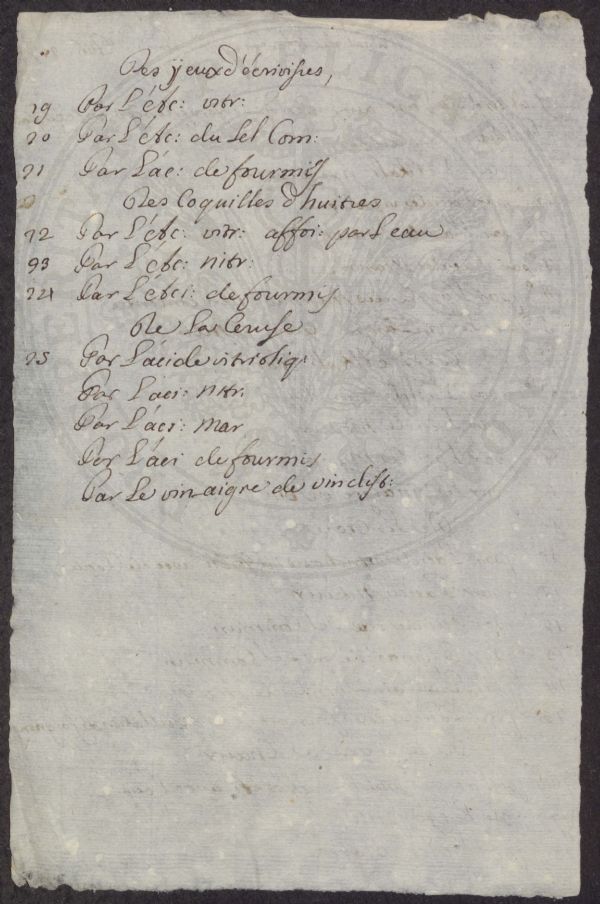 Des yeux d'écrivisses,
19 Par L'étc: vitr:
20 Par L'étc: du sel Com:
21 Par L'ac: de fourmis
Des Coquilles d'huitres
22 Par L'étc: vitr: affoi: par L'eau
23 Par L'étc: nitr:
24 Par L'étci: de fourmis
De La Ceruse
25 Par L'acide vitrioliq:
Par L'aci: nitr.
Par L'aci: mar
Par L'aci de fourmis
Par Le vinaigre de vin dist: